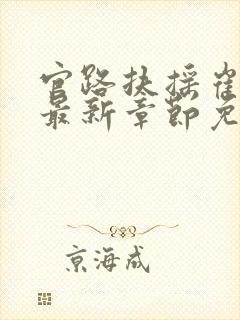 官路扶摇崔
最新章节免
京海成